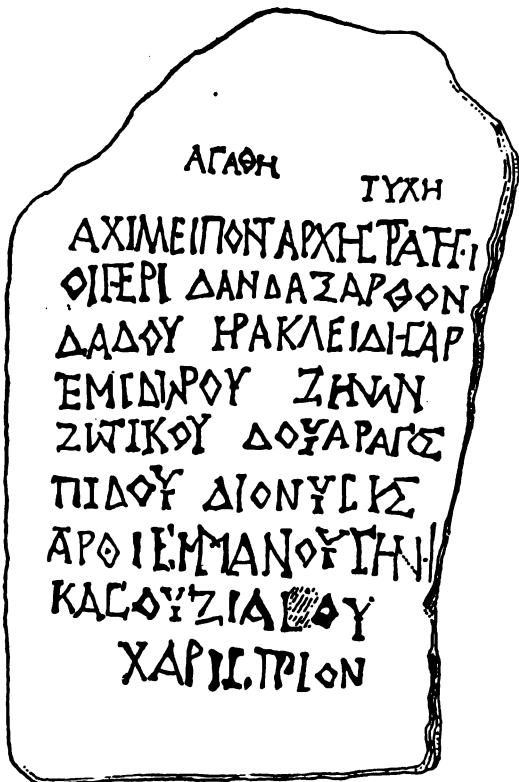 ΑΓΑΘΗ
ΤΥΧΗ
ΑΧΙΛΛΕΙ ΠΟΝΤΑΡΧΗ ϹΤΡΑΤΗΓ
ΟΙ ΠΕΡΙ ΔΑΝΔΑΞΑΡΘΟΝ
ΔΑΔΟΥ ΗΡΑΚΛΕΙΔΗϹ ΑΡ
ΤΕΜΙΔΩΡΟΥ ΖΗΝΩΝ
ΖΩΤΙΚΟΥ ΔΟΥΑΡΑΓΟΣ
ΠΙΔΟΥ ΔΙΟΝΥϹΙΣ
ΚΑϹΟΥ
ΧΑΡΙϹΤΗΡΙΟΝ